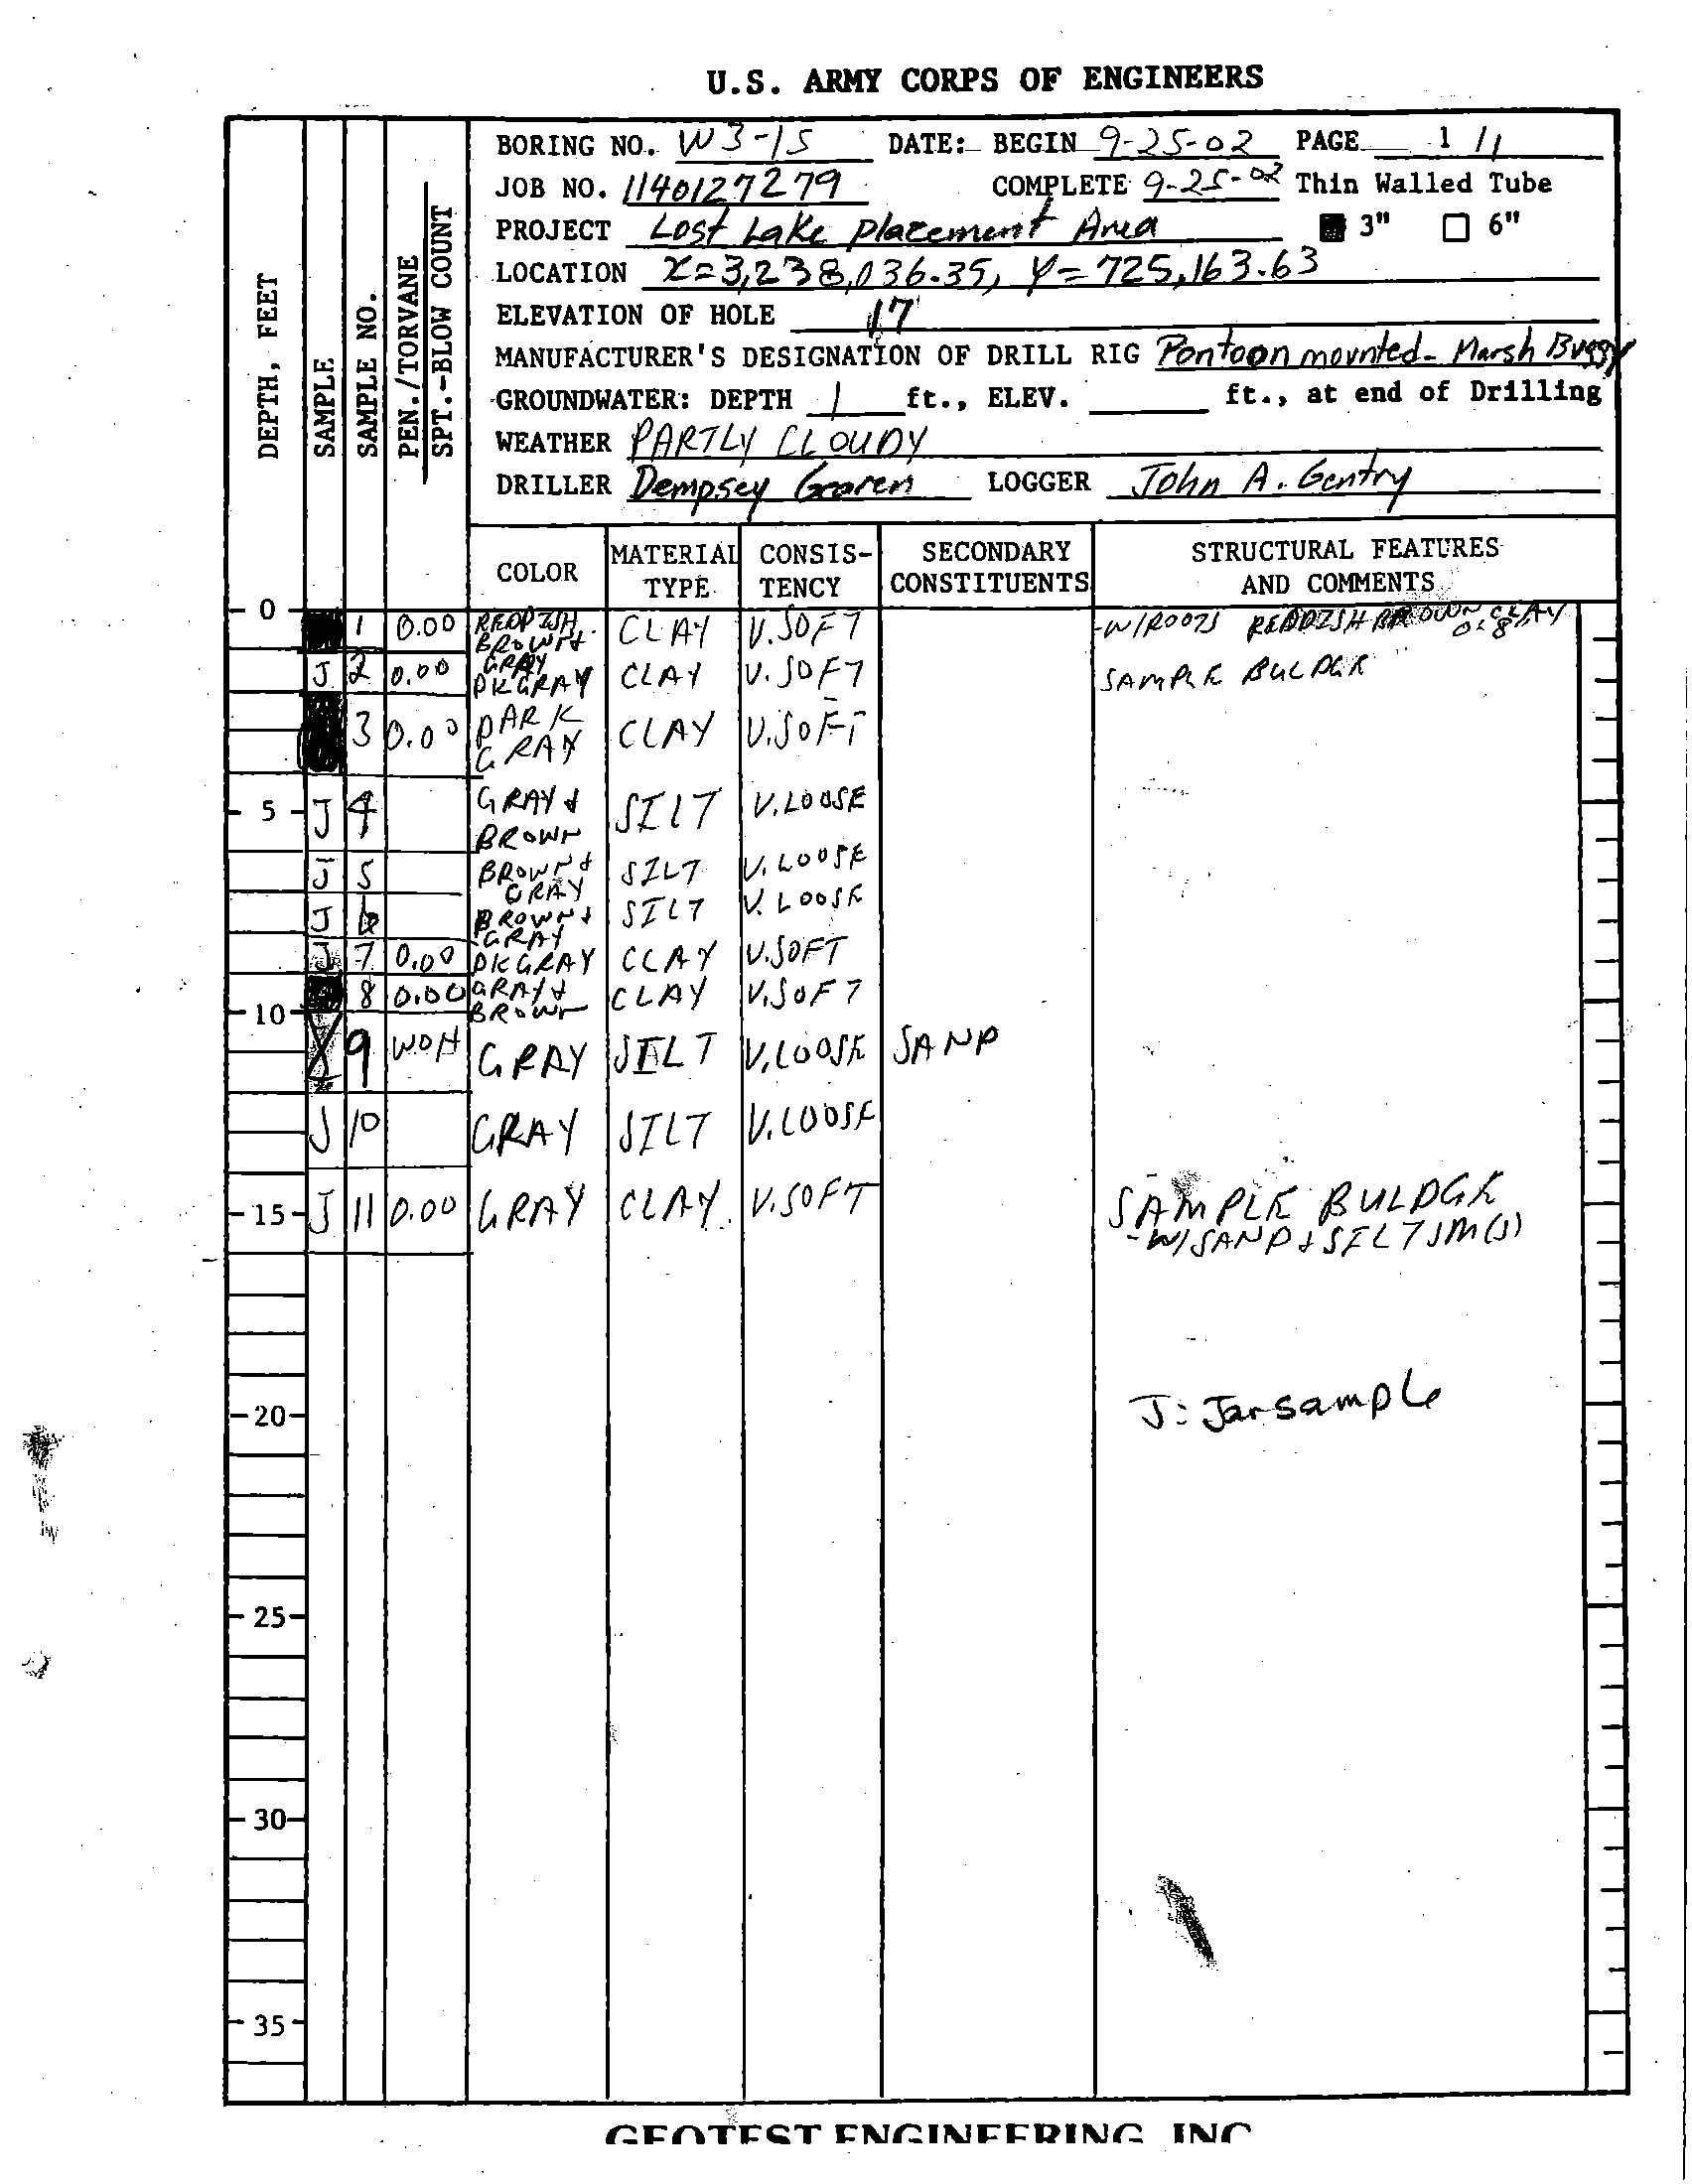 U.S. ARMY CORPS OF ENGINEERS
BORING NO. W3-15 DATE: BEGIN 9-25-02 PAGE 1 / 1
JOB NO. 1140127279 COMPLETE 9-25-02 Thin Walled Tube
PROJECT Lost Lake Placement Area 3" 6"
LOCATION X=3,238,036.35, Y=725,163.63
ELEVATION OF HOLE 17'
MANUFACTURER'S DESIGNATION OF DRILL RIG Pontoon mounted- Marsh Buggy
GROUNDWATER: DEPTH 1 ft., ELEV. ft., at end of Drilling
WEATHER PARTLY CLOUDY
DRILLER Dempsey LOGGER John A. Gentry
DEPTH, FEET
SAMPLE
SAMPLE NO.
PEN./TORVANE
SPT.-BLOW COUNT
COLOR MATERIAL TYPE CONSIS-TENCY SECONDARY CONSTITUENTS STRUCTURAL FEATURES AND COMMENTS
0
1 0.00 REDDISH BROWN & GRAY CLAY V.SOFT -W/ROOTS REDDISH BROWN CLAY 0.8
J 2 0.00 DK GRAY CLAY V.SOFT SAMPLE BULDGE
3 0.00 DARK GRAY CLAY V.SOFT
5 J 4 GRAY & BROWN SILT V.LOOSE
J 5 BROWN & GRAY SILT V.LOOSE
J 6 BROWN & GRAY SILT V.LOOSE
J 7 0.00 DK GRAY CLAY V.SOFT
8 0.00 GRAY & BROWN CLAY V.SOFT
10
9 WOH GRAY SILT V.LOOSE SAND
J 10 GRAY SILT V.LOOSE
15 J 11 0.00 GRAY CLAY V.SOFT SAMPLE BULDGE
-W/SAND & SILT SM(S)
20 J: Jar sample
25
30
35
GEOTEST ENGINEERING INC